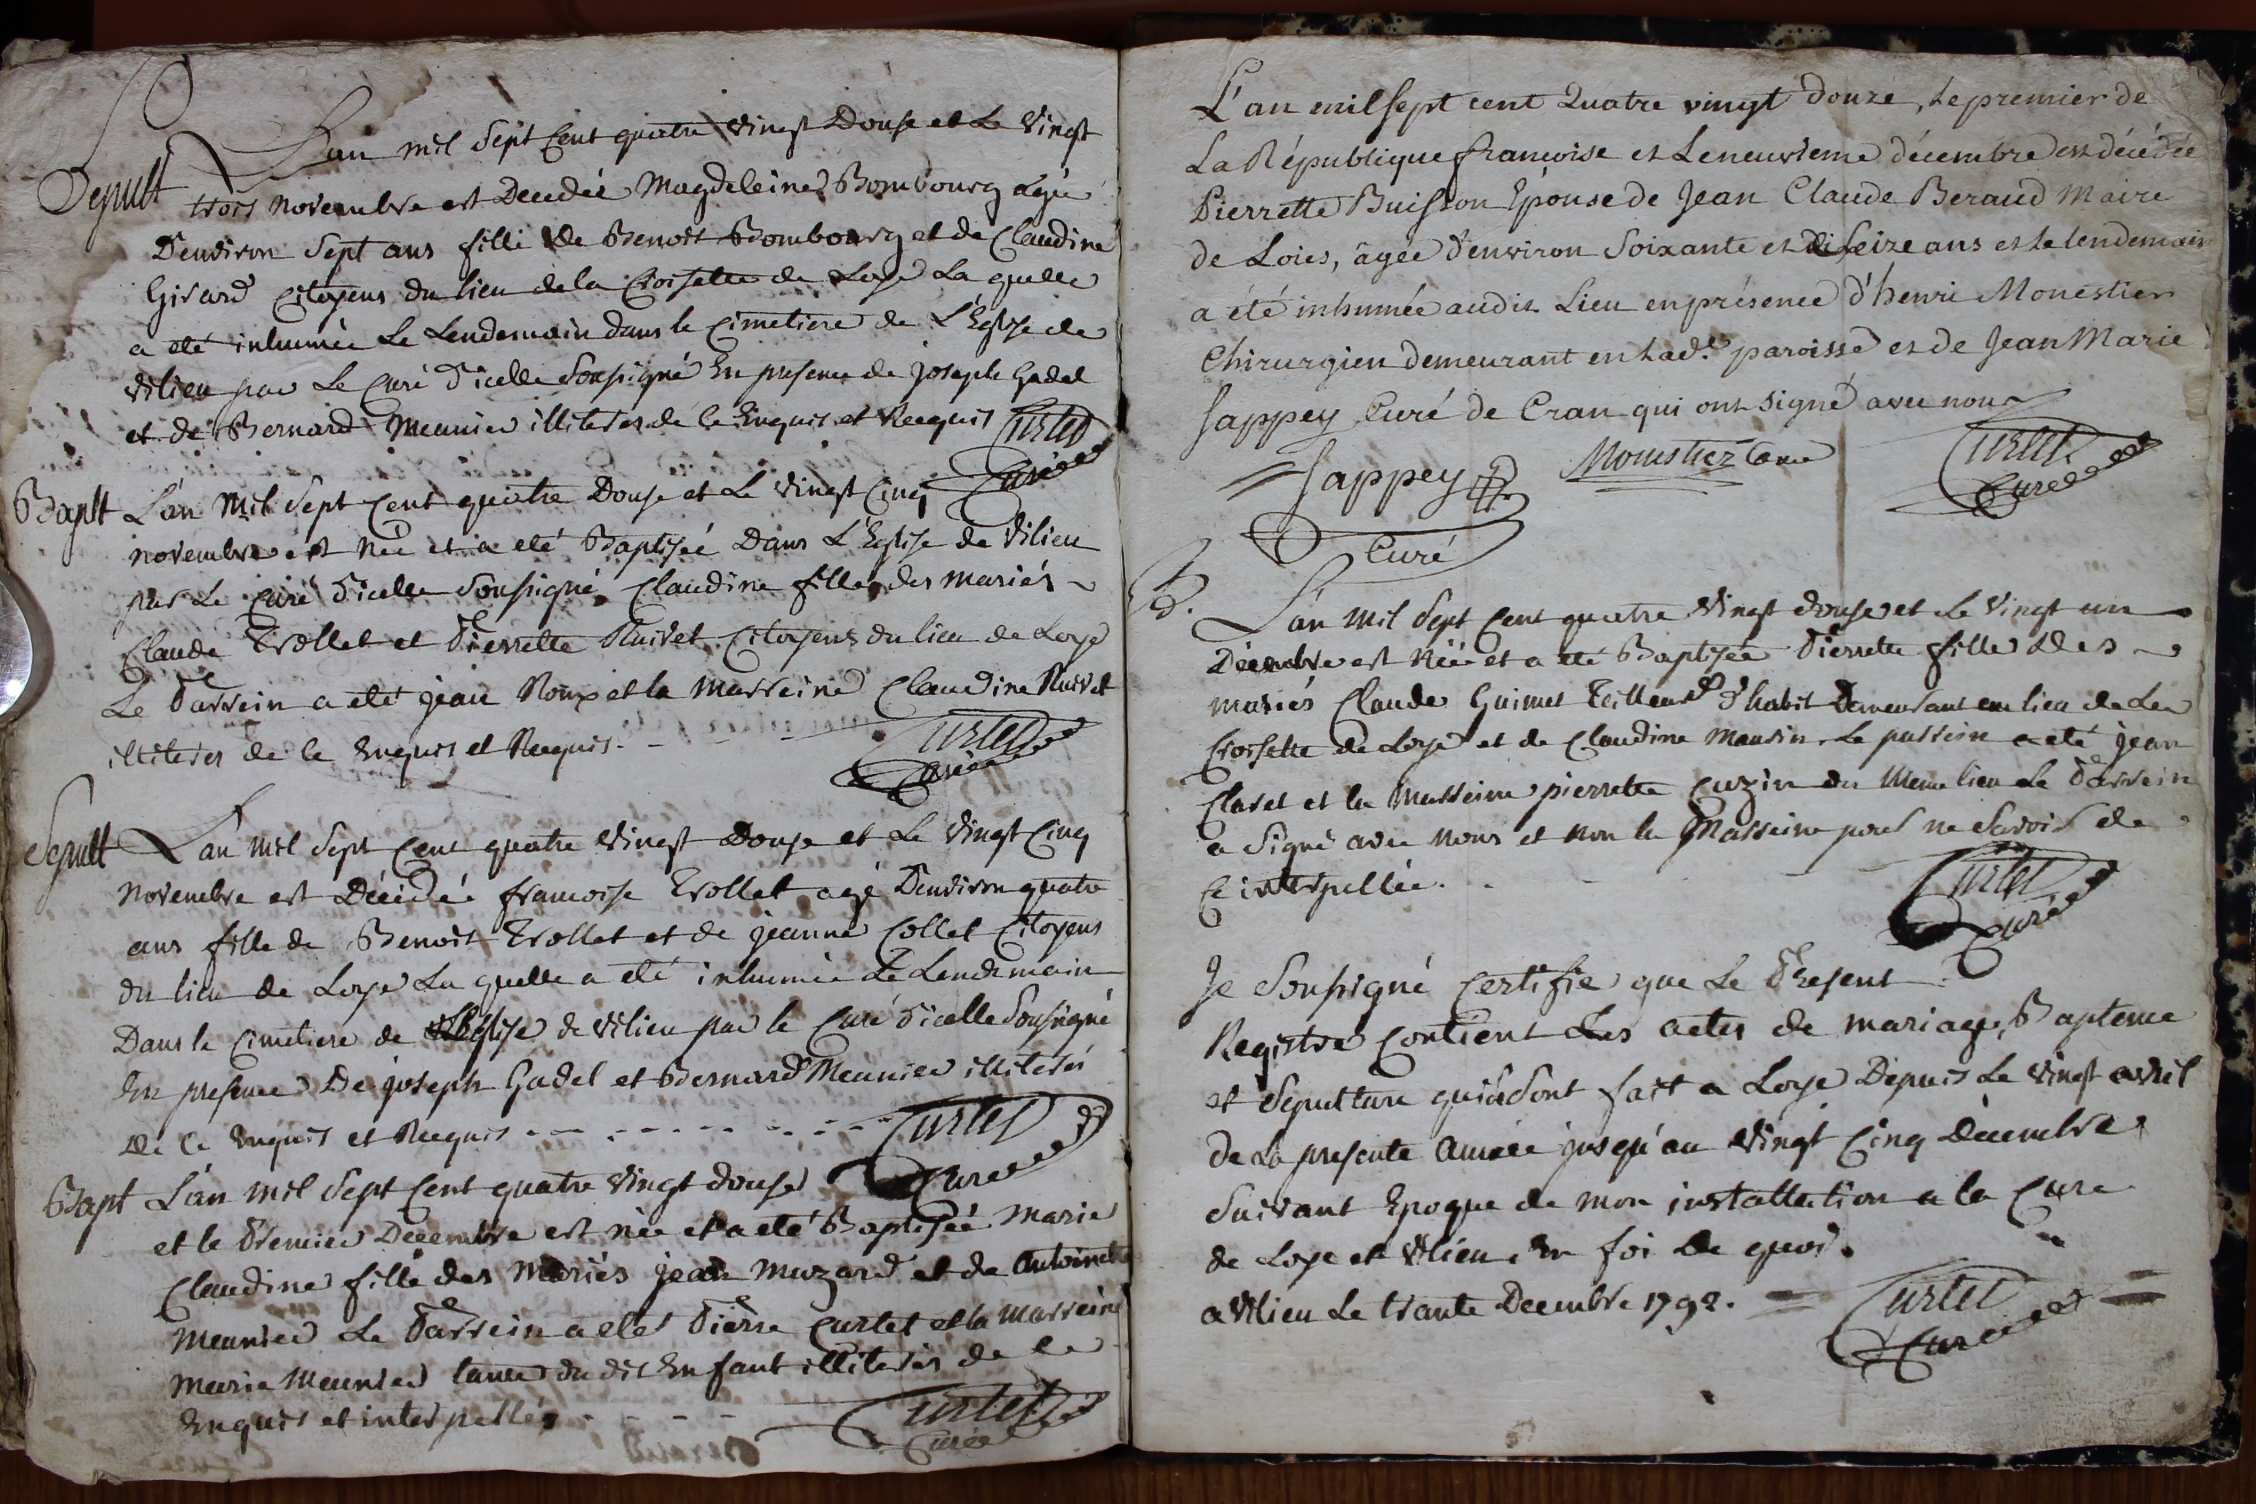 Sepult
L'an mil sept cent quatre vingt douse et le vingt
trois novembre est decedée Magdeleine Bombourg agée
D'environ sept ans fille de Benoit Bombourg et de Claudine
Girard citoyens du lieu de la Croisette de Loye La quelle
a eté inhumée Le Lendemain dans le cimetiere de L'Eglise de
vilieu par Le curé d'icelle soussigné En presence de joseph Gadel
et de Bernard Meunier illiterés de ce Enquis et Requis Curtet
Curé
Bapt L'an Mil sept cent quatre Douse et Le vingt cinq
novembre est née et a eté Baptisée Dans L'Eglise de vilieu
par Le curé d'icelle soussigné Claudine fille des mariés
Claude Trollet et Pierrette Ruivet citoyens du lieu de Loye
Le Parrein a eté jean Roux et la Marreine Claudine Ruivet
illiterés de ce Enquis et Requis. Curtet
Curé
Sepult L'an mil sept cent quatre vingt Douse et Le vingt cinq
novembre est Décédée francoise Trollet agé D'environ quatre
ans fille de Benoit Trollet et de jeanne Collet citoyens
du lieu de Loye La quelle a eté inhumée Le Lendemain
Dans le cimetiere de L'Eglise de vilieu par le curé d'icelle soussigné
En presence De joseph Gadel et Bernard Meunier illiterés
De ce Enquis et Requis Curtet
Curé
Bapt L'an mil sept cent quatre vingt douse
et le Premier Decembre est née et a eté Baptisée Marie
Claudine fille des Mariés jean Muzard et de Antoinette
Meunier Le Parrein a eté Pierre Curtet et la Marreine
Marie Meunier tante du dit Enfant illiterés de ce
Enquis et interpellés Curtet
Curé
L'an mil sept cent Quatre vingt douze, le premier de
La République francoise et Le neuvieme décembre est décédée
Pierrette Buisson Epouse de Jean Claude Beraud Maire
de Loies, âgée d'environ soixante et diseize ans et le lendemain
a été inhumée audit Lieu en présence d'henri Monestier
Chirurgien demeurant en lad.e paroisse et de Jean Marie
Sappey Curé de Cran qui ont signé avec nous
Sappey Monestier Curtet
Curé Curé
B.
L'an mil sept cent quatre vingt douse et Le vingt un
Décembre est Née et a eté Baptisée Pierrette fille des
mariés Claude Guimet Tailleur d'habit Demeurant au lieu de La
Croisette de Loye et de Claudine Mansin. Le parrein a eté jean
Claret et la Marreine pierrette cuzin du Meme lieu Le Parrein
a signé avec nous et non la Marreine pour ne savoir de
ce interpellée. Curtet
Curé
Je soussigné certifie que Le Present
Registre contient Les actes de mariage, Bapteme
et Sepulture qui se sont fait a Loye Depuis Le vingt avril
de La presente Année jusqu'au vingt cinq Décembre
suivant Epoque de mon installation a la cure
de Loye et vilieu, En foi de quoi.
a vilieu Le trante Decembre 1792. Curtet
Curé